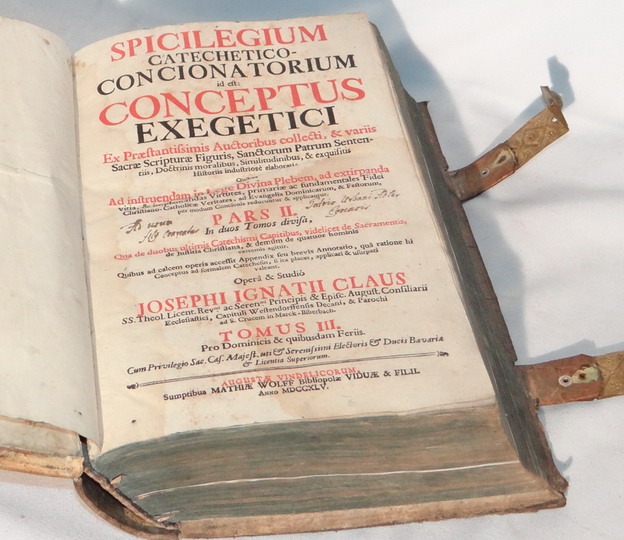 SPICILEGIUM
CATECHETICO-
CONCIONATORIUM
id est:
CONCEPTUS
EXEGETICI
Ex Præstantissimis Auctoribus collecti, & variis
Sacræ Scripturæ Figuris, Sanctorum Patrum Senten-
tiis, Doctrinis moralibus, Similitudinibus, & exquisitis
Historiis industriosè elaborati.
Ad instruendam in Lege Divina Plebem, ad extirpanda
vitia, Virtutes, primariæ ac fundamentales Fidei
Christiano-Catholicæ Veritates, ad Evangelia Dominicarum, & Festorum,
per modum Concionis reducuntur & applicantur.
PARS II.
In duos Tomos divisa,
Ad usum
Qua de duobus ultimis Catechismi Capitibus, videlicet de Sacramentis,
de Justitia Christiana, & demum de quatuor hominis
agitur.
Quibus ad calcem operis accessit Appendix seu brevis Annotatio, quâ ratione hi
Conceptus ad formalem Catechesin, si ita placet, applicari & usurpari
valeant.
Operâ & Studiô
JOSEPHI IGNATII CLAUS
SS. Theol. Licent. Revmi ac Serenmi Principis & Episc. August. Consiliarii
Ecclesiastici, Capituli Westendorffensis Decani, & Parochi
ad S. Crucem in Marck-Biberbach.
TOMUS III.
Pro Dominicis & quibusdam Feriis.
Cum Privilegio Sac. Cæs. Majest. uti & Serenissimi Electoris & Ducis Bavariæ
& Licentia Superiorum.
AUGUSTÆ VINDELICORUM,
Sumptibus MATHIÆ WOLFF Bibliopolæ VIDUÆ & FILII.
Anno MDCCXLV.